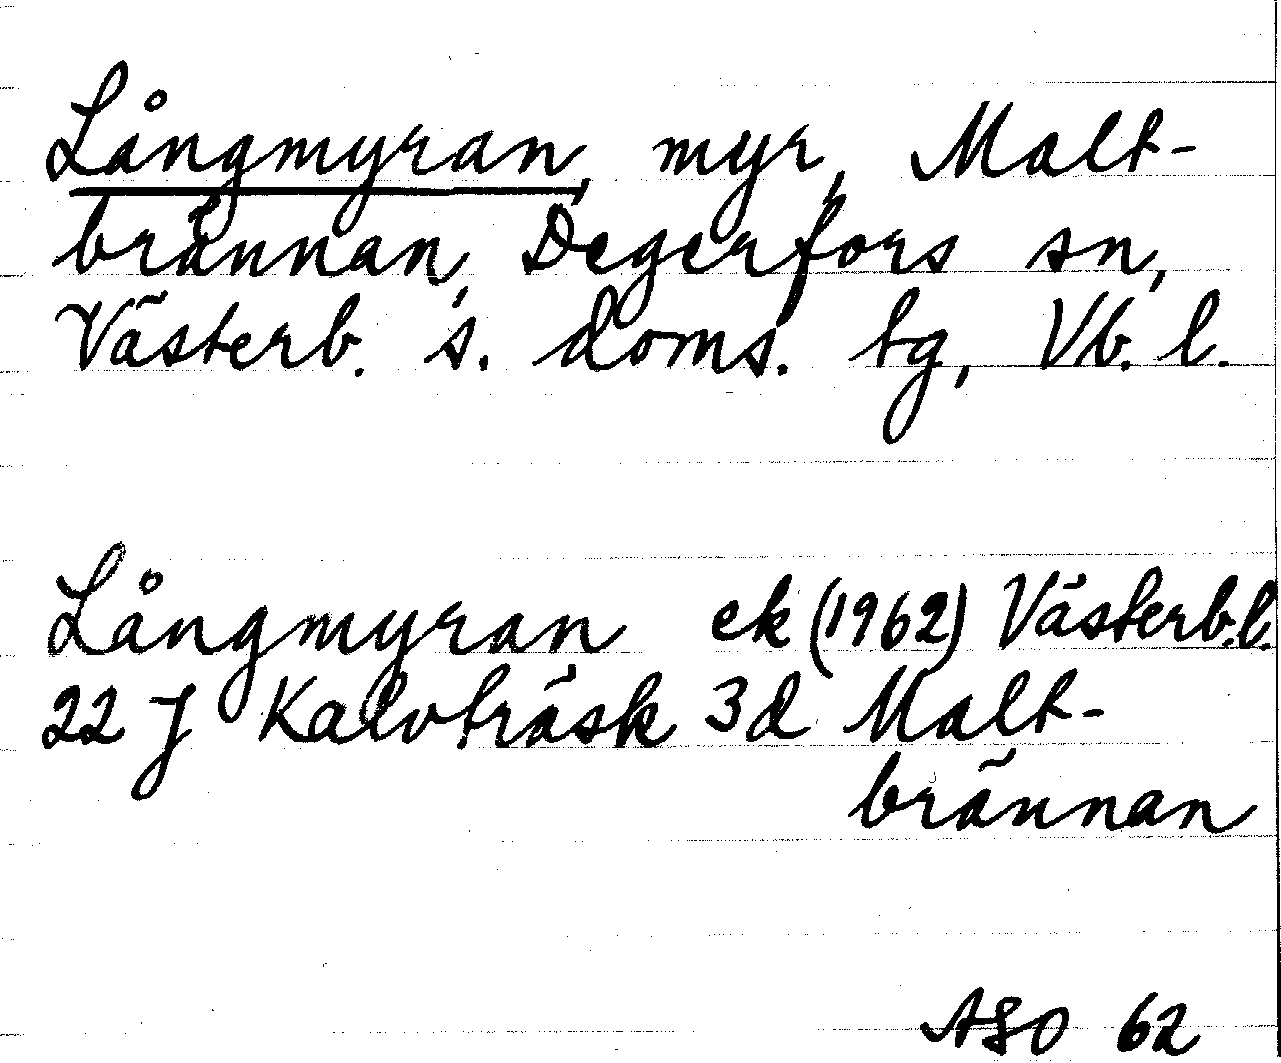 Långmyran, myr, Malt-
brännan, Degerfors sn,
Västerb. s. doms. tg, Vb. l.
Långmyran ek (1962) Västerb.l.
22 J Kalvträsk 3d Malt-
brännan
ASO 62